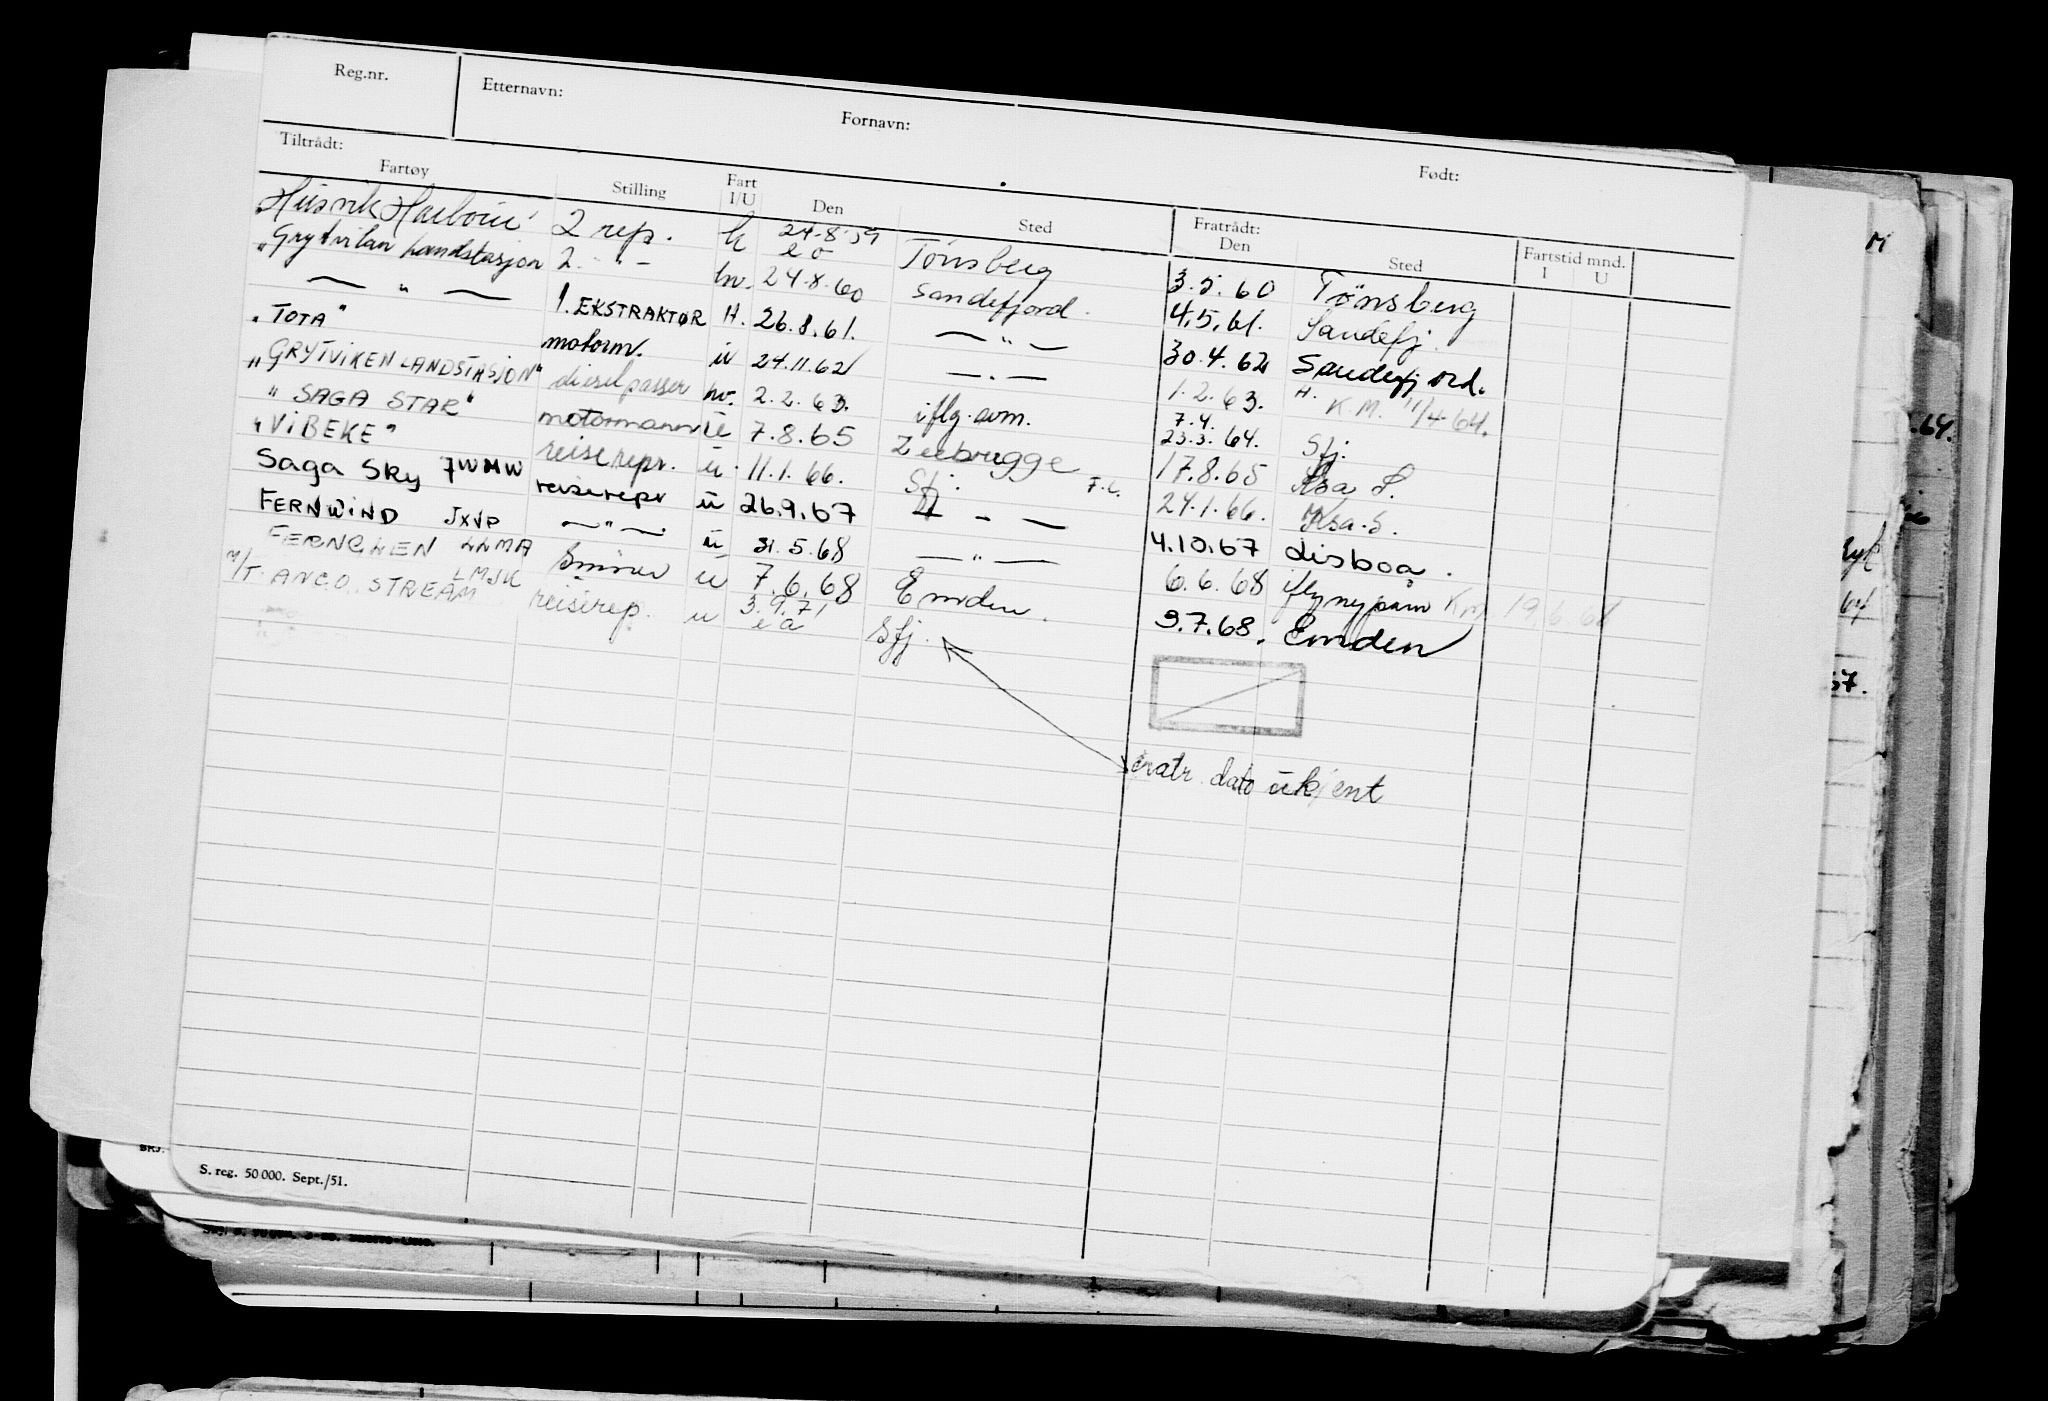 Reg.nr. Etternavn: Fornavn: Født:
Tiltrådt: Fratrådt:
Fartøy Stilling Fart I/U Den Sted Den Sted Fartstid mnd. I U
Husvik Harbour 2 rep. h 24-8-59 Tønsberg 3.5.60 Tønsberg
"Grytviken Landstasjon 2. - " - hv. 24.8.60 Sandefjord. 4.5.61. Sandefj.
— " — 1. EKSTRAKTØR H. 26.8.61. — " — 30.4.62 Sandefjord.
"TOTA" motorm. u 24.11.62 — . — 1.2.63. H. K.M. 11/4-64.
"GRYTVIKEN LANDSTASJON" dieselpasser hv. 2.2.63. iflg. avm. 7.4. 23.3.64. Sfj.
"SAGA STAR" motormann u 7.8.65 Zeebrugge 17.8.65
"VIBEKE" reiserepr. u. 11.1.66. Sfj. F.C. 24.1.66.
Saga Sky JWMW reiserepr u 26.9.67 — 4.10.67 Lisboa.
FERNWIND JXVP — " —. u 31.5.68 — " — 6.6.68 iflg ny påm K.M. 19.6.68
FERNGLEN LLMA Smører u 7.6.68 Emden. 3.7.68. Emden
M/T. ANCO STREAM LMJK reiserep. u 3.9.71 Sfj.
fratr. dato ukjent
S. reg. 50 000. Sept./51.